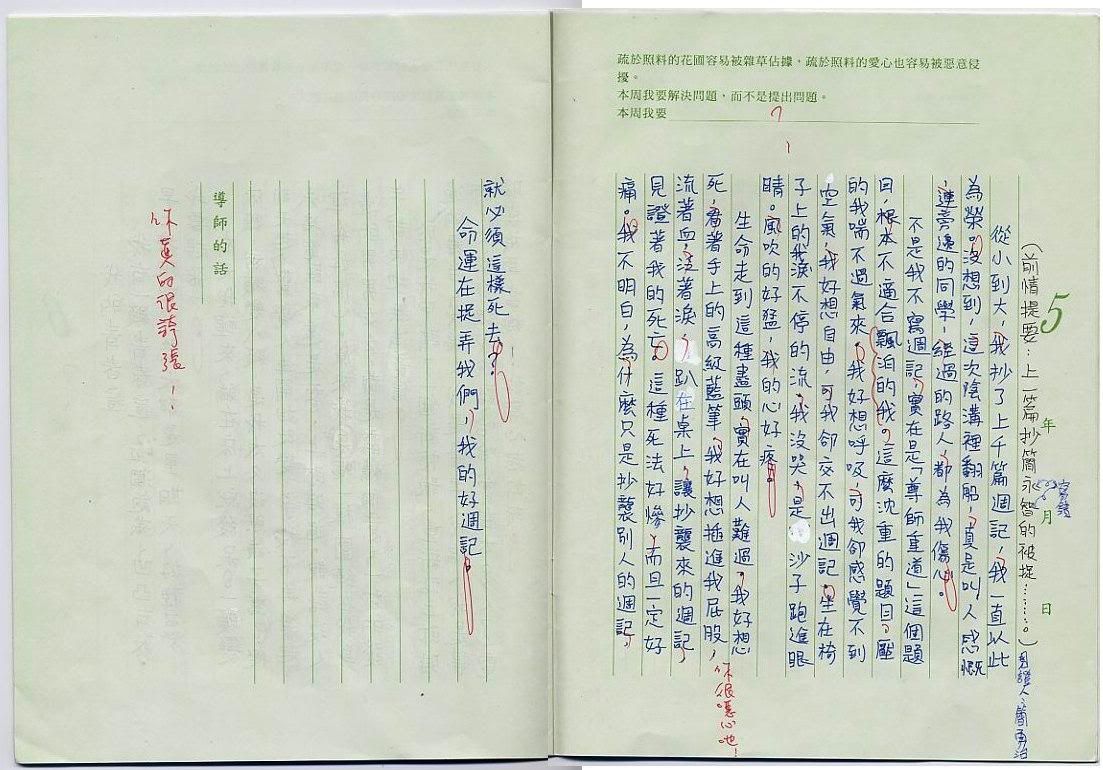 疏於照料的花圃容易被雜草佔據，疏於照料的愛心也容易被惡意侵
擾。
本周我要解決問題，而不是提出問題。
本周我要
5
年
月
日
（前情提要：上一篇抄簡永智的被捉……。）
從小到大，我抄了上千篇週記，我一直以此
為榮。沒想到，這次陰溝裡翻船，真是叫人感慨
，連旁邊的同學，經過的路人，都為我傷心。
不是我不寫週記，實在是「尊師重道」這個題
目，根本不適合飄泊的我。這麼沈重的題目，壓
的我喘不過氣來。我好想呼吸，可我卻感覺不到
空氣，我好想自由，可我卻交不出週記。坐在椅
子上的我淚不停的流，我沒哭，是沙子跑進眼
睛。風吹的好猛，我的心好疼。
生命走到這種盡頭，實在叫人難過。我好想
死，看著手上的高級藍筆，我好想插進我屁股，
你很噁心吔！
流著血，泣著淚，趴在桌上，讓抄襲來的週記，
見證著我的死亡。這種死法好慘，而且一定好
痛。我不明白，為什麼只是抄襲別人的週記，
就必須這樣死去？
命運在捉弄我們，我的好週記。
導師的話
你真的很誇張！